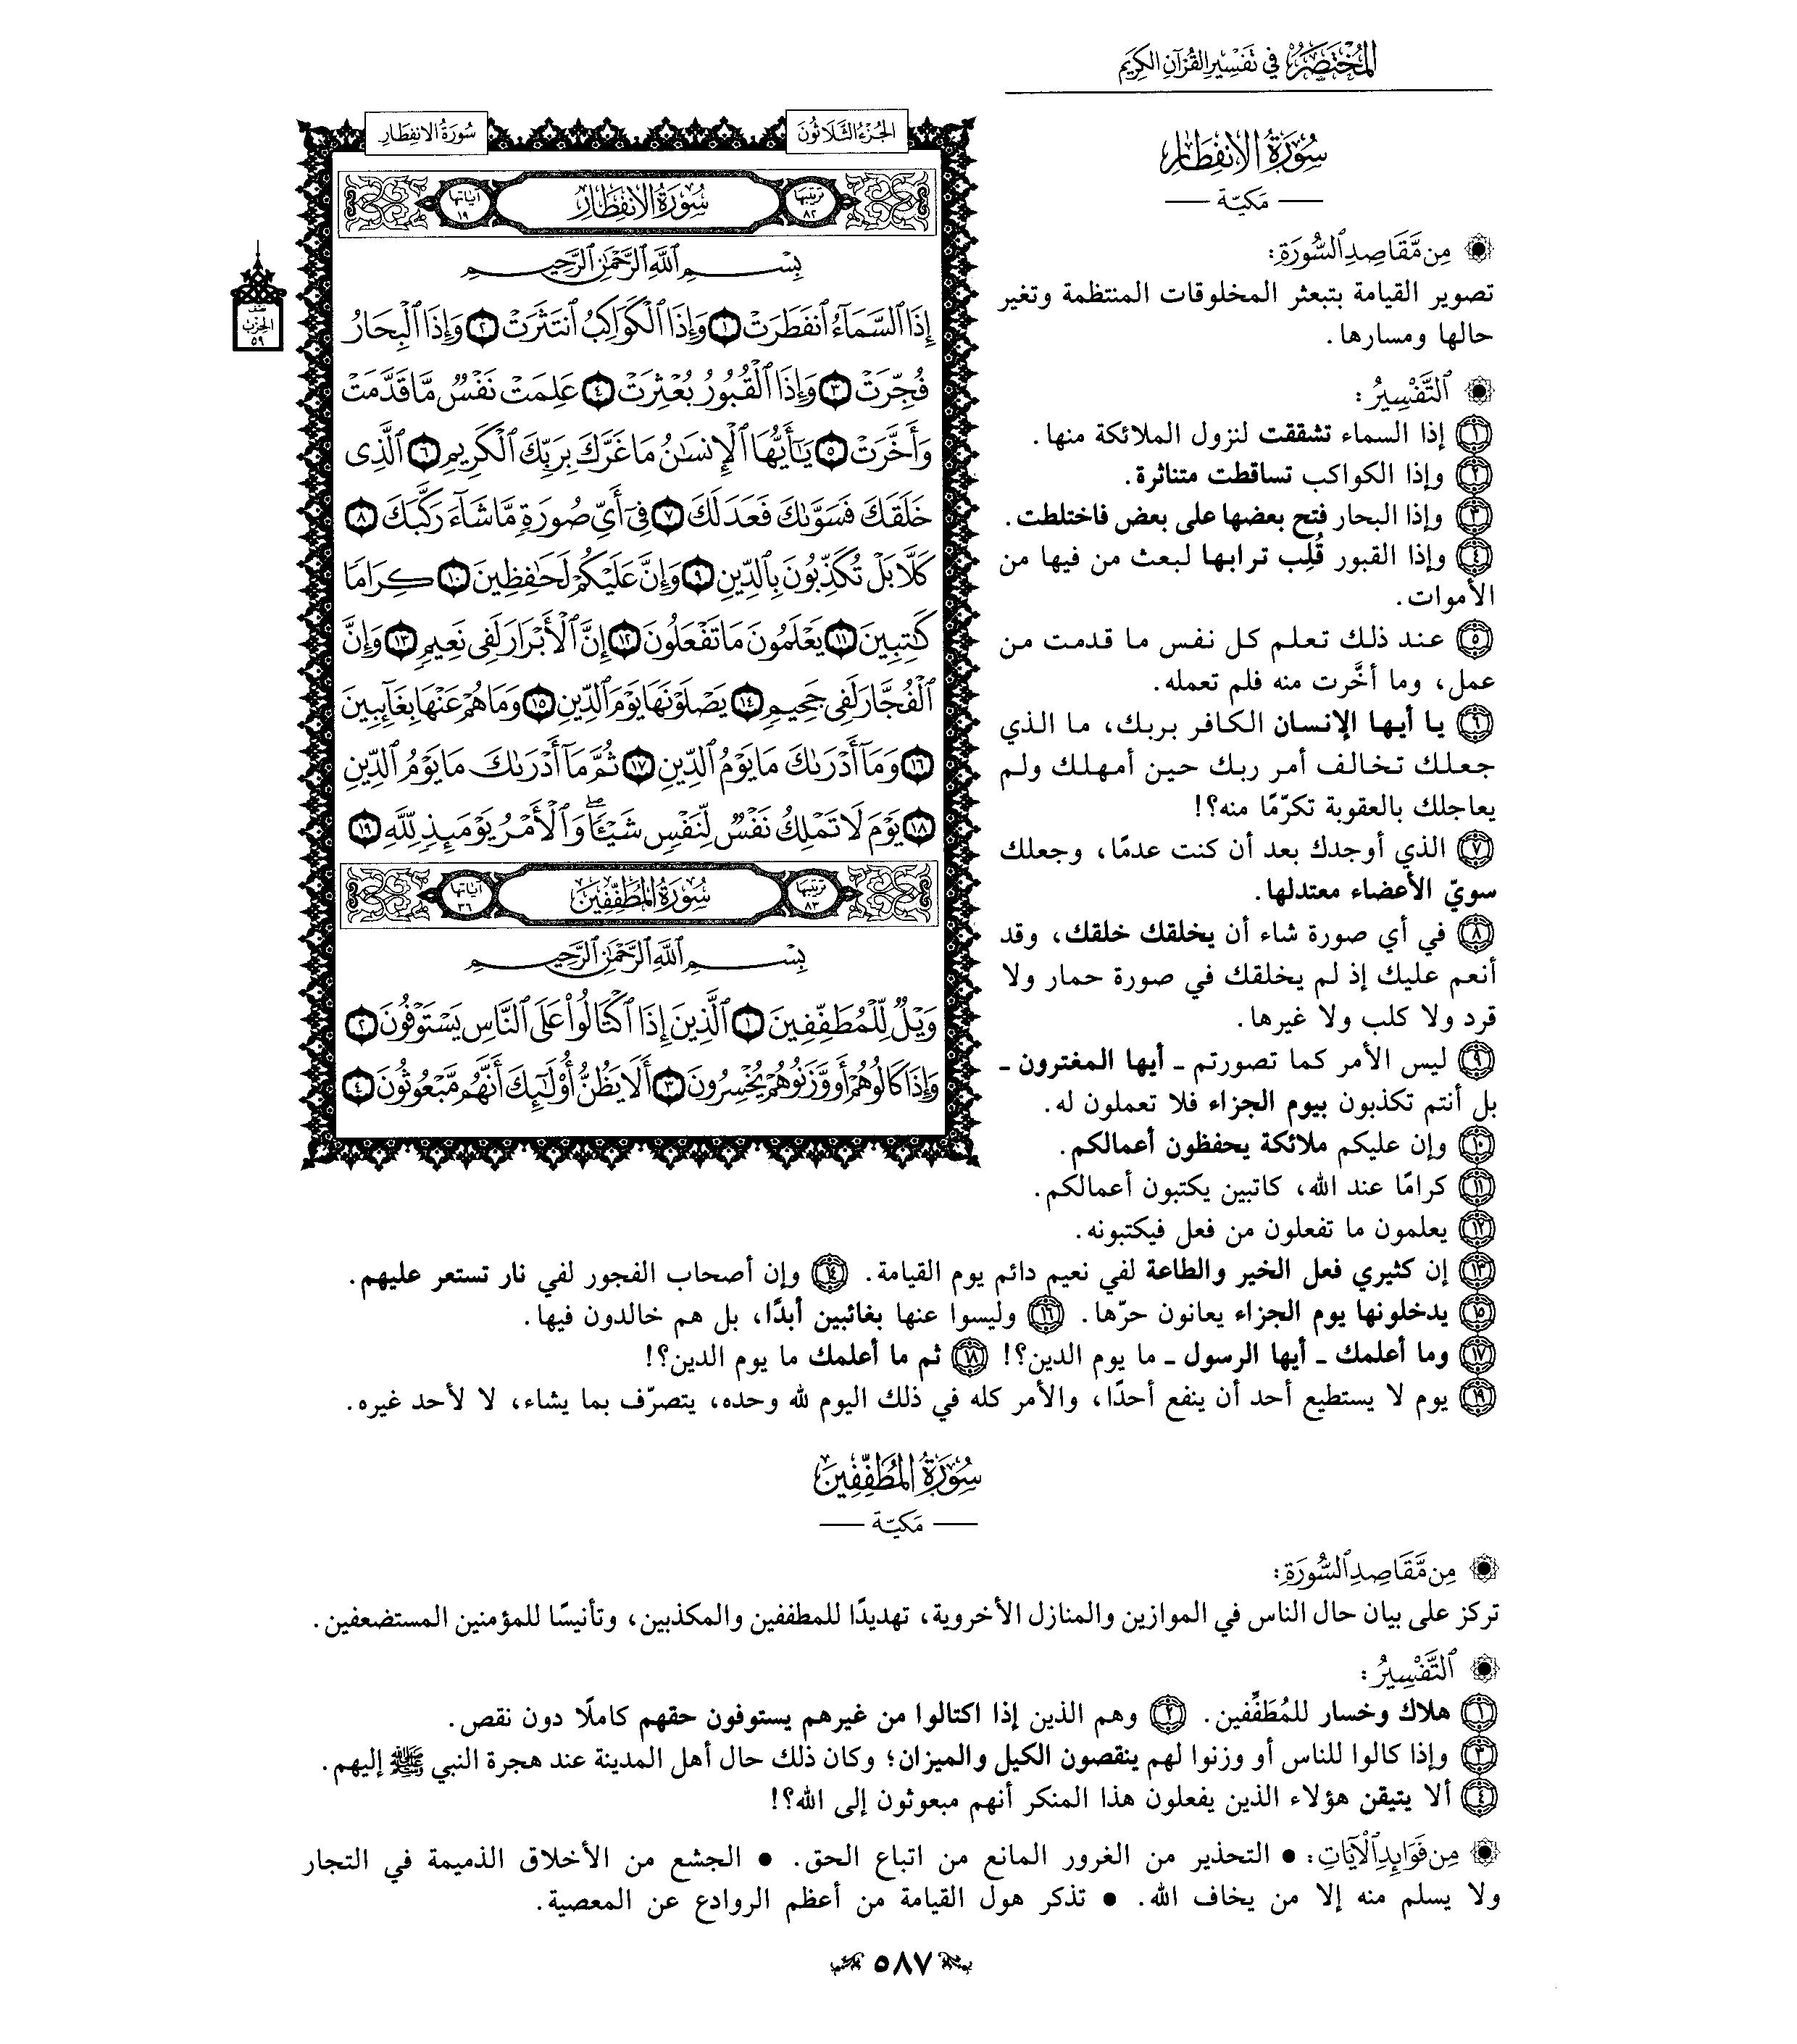 المُخْتَصَرُ فِي تَفْسِيرِ القُرْآنِ الكَرِيمِ
سُورَةُ الانفِطَارِ
مَكيّة
مِن مَّقَاصِدِ ٱلسُّورَةِ:
تصوير القيامة بتبعثر المخلوقات المنتظمة وتغير
حالها ومسارها.
ٱلتَّفْسِيرُ:
١ إذا السماء تشققت لنزول الملائكة منها.
٢ وإذا الكواكب تساقطت متناثرة.
٣ وإذا البحار فتح بعضها على بعض فاختلطت.
٤ وإذا القبور قُلِب ترابها لبعث من فيها من
الأموات.
٥ عند ذلك تعلم كل نفس ما قدمت من
عمل، وما أخَّرت منه فلم تعمله.
٦ يا أيها الإنسان الكافر بربك، ما الذي
جعلك تخالف أمر ربك حين أمهلك ولم
يعاجلك بالعقوبة تكرّمًا منه؟!
٧ الذي أوجدك بعد أن كنت عدمًا، وجعلك
سويّ الأعضاء معتدلها.
٨ في أي صورة شاء أن يخلقك خلقك، وقد
أنعم عليك إذ لم يخلقك في صورة حمار ولا
قرد ولا كلب ولا غيرها.
٩ ليس الأمر كما تصورتم ـ أيها المغترون ـ
بل أنتم تكذبون بيوم الجزاء فلا تعملون له.
١٠ وإن عليكم ملائكة يحفظون أعمالكم.
١١ كرامًا عند الله، كاتبين يكتبون أعمالكم.
١٢ يعلمون ما تفعلون من فعل فيكتبونه.
الجُزْءُ الثَّلَاثُونَ
سُورَةُ الانفِطَارِ
ترتيبها ٨٢ سُورَةُ الانفِطَارِ آياتها ١٩
نصف الحزب ٥٩
بِسْمِ ٱللَّهِ ٱلرَّحْمَٰنِ ٱلرَّحِيمِ
إِذَا ٱلسَّمَآءُ ٱنفَطَرَتْ ١ وَإِذَا ٱلْكَوَاكِبُ ٱنتَثَرَتْ ٢ وَإِذَا ٱلْبِحَارُ
فُجِّرَتْ ٣ وَإِذَا ٱلْقُبُورُ بُعْثِرَتْ ٤ عَلِمَتْ نَفْسٌ مَّا قَدَّمَتْ
وَأَخَّرَتْ ٥ يَٰٓأَيُّهَا ٱلْإِنسَٰنُ مَا غَرَّكَ بِرَبِّكَ ٱلْكَرِيمِ ٦ ٱلَّذِى
خَلَقَكَ فَسَوَّىٰكَ فَعَدَلَكَ ٧ فِىٓ أَىِّ صُورَةٍ مَّا شَآءَ رَكَّبَكَ ٨
كَلَّا بَلْ تُكَذِّبُونَ بِٱلدِّينِ ٩ وَإِنَّ عَلَيْكُمْ لَحَٰفِظِينَ ١٠ كِرَامًا
كَٰتِبِينَ ١١ يَعْلَمُونَ مَا تَفْعَلُونَ ١٢ إِنَّ ٱلْأَبْرَارَ لَفِى نَعِيمٍ ١٣ وَإِنَّ
ٱلْفُجَّارَ لَفِى جَحِيمٍ ١٤ يَصْلَوْنَهَا يَوْمَ ٱلدِّينِ ١٥ وَمَا هُمْ عَنْهَا بِغَآئِبِينَ
١٦ وَمَآ أَدْرَىٰكَ مَا يَوْمُ ٱلدِّينِ ١٧ ثُمَّ مَآ أَدْرَىٰكَ مَا يَوْمُ ٱلدِّينِ
١٨ يَوْمَ لَا تَمْلِكُ نَفْسٌ لِّنَفْسٍ شَيْـًٔا ۖ وَٱلْأَمْرُ يَوْمَئِذٍ لِّلَّهِ ١٩
ترتيبها ٨٣ سُورَةُ المُطَفِّفِينَ آياتها ٣٦
بِسْمِ ٱللَّهِ ٱلرَّحْمَٰنِ ٱلرَّحِيمِ
وَيْلٌ لِّلْمُطَفِّفِينَ ١ ٱلَّذِينَ إِذَا ٱكْتَالُوا۟ عَلَى ٱلنَّاسِ يَسْتَوْفُونَ ٢
وَإِذَا كَالُوهُمْ أَو وَّزَنُوهُمْ يُخْسِرُونَ ٣ أَلَا يَظُنُّ أُو۟لَٰٓئِكَ أَنَّهُم مَّبْعُوثُونَ ٤
١٣ إن كثيري فعل الخير والطاعة لفي نعيم دائم يوم القيامة. ١٤ وإن أصحاب الفجور لفي نار تستعر عليهم.
١٥ يدخلونها يوم الجزاء يعانون حرّها. ١٦ وليسوا عنها بغائبين أبدًا، بل هم خالدون فيها.
١٧ وما أعلمك ـ أيها الرسول ـ ما يوم الدين؟! ١٨ ثم ما أعلمك ما يوم الدين؟!
١٩ يوم لا يستطيع أحد أن ينفع أحدًا، والأمر كله في ذلك اليوم لله وحده، يتصرّف بما يشاء، لا لأحد غيره.
سُورَةُ المُطَفِّفِينَ
مَكيّة
مِن مَّقَاصِدِ ٱلسُّورَةِ:
تركز على بيان حال الناس في الموازين والمنازل الأخروية، تهديدًا للمطففين والمكذبين، وتأنيسًا للمؤمنين المستضعفين.
ٱلتَّفْسِيرُ:
١ هلاك وخسار للمُطَفِّفين. ٢ وهم الذين إذا اكتالوا من غيرهم يستوفون حقهم كاملًا دون نقص.
٣ وإذا كالوا للناس أو وزنوا لهم ينقصون الكيل والميزان؛ وكان ذلك حال أهل المدينة عند هجرة النبي ﷺ إليهم.
٤ ألا يتيقن هؤلاء الذين يفعلون هذا المنكر أنهم مبعوثون إلى الله؟!
مِن فَوَائِدِ ٱلْآيَاتِ: • التحذير من الغرور المانع من اتباع الحق. • الجشع من الأخلاق الذميمة في التجار
ولا يسلم منه إلا من يخاف الله. • تذكر هول القيامة من أعظم الروادع عن المعصية.
٥٨٧